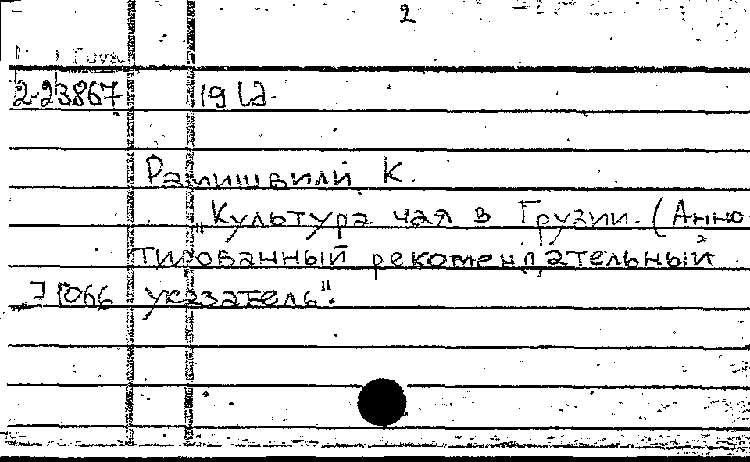 2
2-23867 19
Рамишвили К.
„Культура чая в Грузии. (Анно-
тированный рекомендательный
указатель".